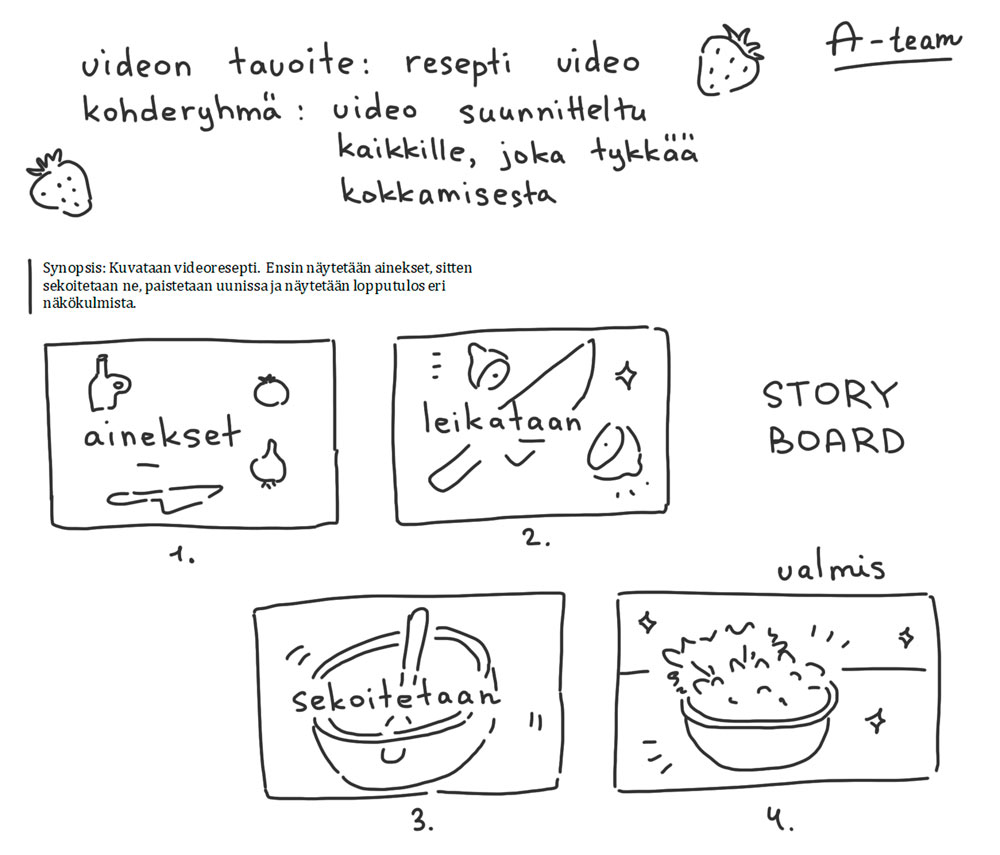 videon tavoite: resepti video
A-team
kohderyhmä: video suunnitteltu
kaikkille, joka tykkää
kokkamisesta
Synopsis: Kuvataan videoresepti. Ensin näytetään ainekset, sitten
sekoitetaan ne, paistetaan uunissa ja näytetään lopputulos eri
näkökulmista.
ainekset
1.
leikataan
2.
STORY
BOARD
sekoitetaan
3.
valmis
4.